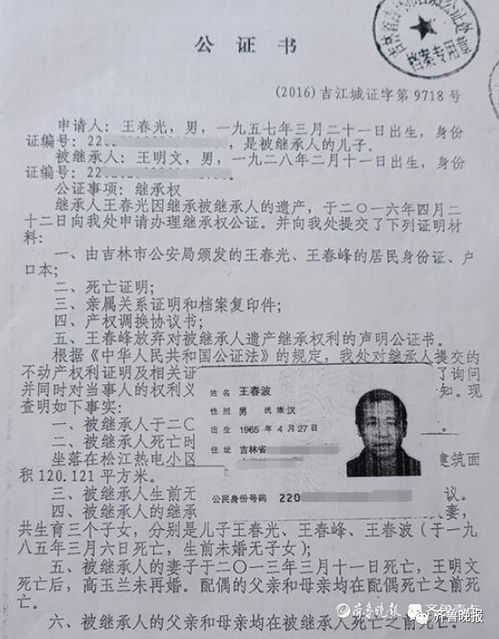 公证书
档案专用章
(2016)吉江城证字第9718号
申请人:王春光,男,一九五七年三月二十一日出生,身份
证编号:220 ,是被继承人的儿子。
被继承人:王明文,男,一九二八年二月十一日出生,身份
证编号:220
公证事项:继承权
继承人王春光因继承被继承人的遗产,于二〇一六年四月二
十二日向我处申请办理继承权公证。并向我处提交了下列证明材
料:
一、由吉林市公安局颁发的王春光、王春峰的居民身份证、户
口本;
二、死亡证明;
三、亲属关系证明和档案复印件;
四、产权调换协议书;
五、王春峰放弃对被继承人遗产继承权利的声明公证书。
根据《中华人民共和国公证法》的规定,我处对继承人提交的
不动产权利证明及相关证 了询问
并同时对当事人的权利义 知。现
查明如下事实:
一、被继承人于二〇
二、被继承人死亡时
坐落在松江热电小区 建筑面
积120.121平方米。
三、被继承人生前无 议。
四、被继承人的继承 妻,
共生育三个子女,分别是儿子王春光、王春峰、王春波(于一九
八五年三月六日死亡,生前未婚无子女);
五、被继承人的妻子于二〇一三年三月十一日死亡,王明文
死亡后,高玉兰未再婚。配偶的父亲和母亲均在配偶死亡之前死
亡。
六、被继承人的父亲和母亲均在被继承人死亡之前死亡。
姓名 王春波
性别 男 民族 汉
出生 1965年4月27日
住址 吉林省
公民身份号码 220
齐鲁晚报
齐鲁晚报